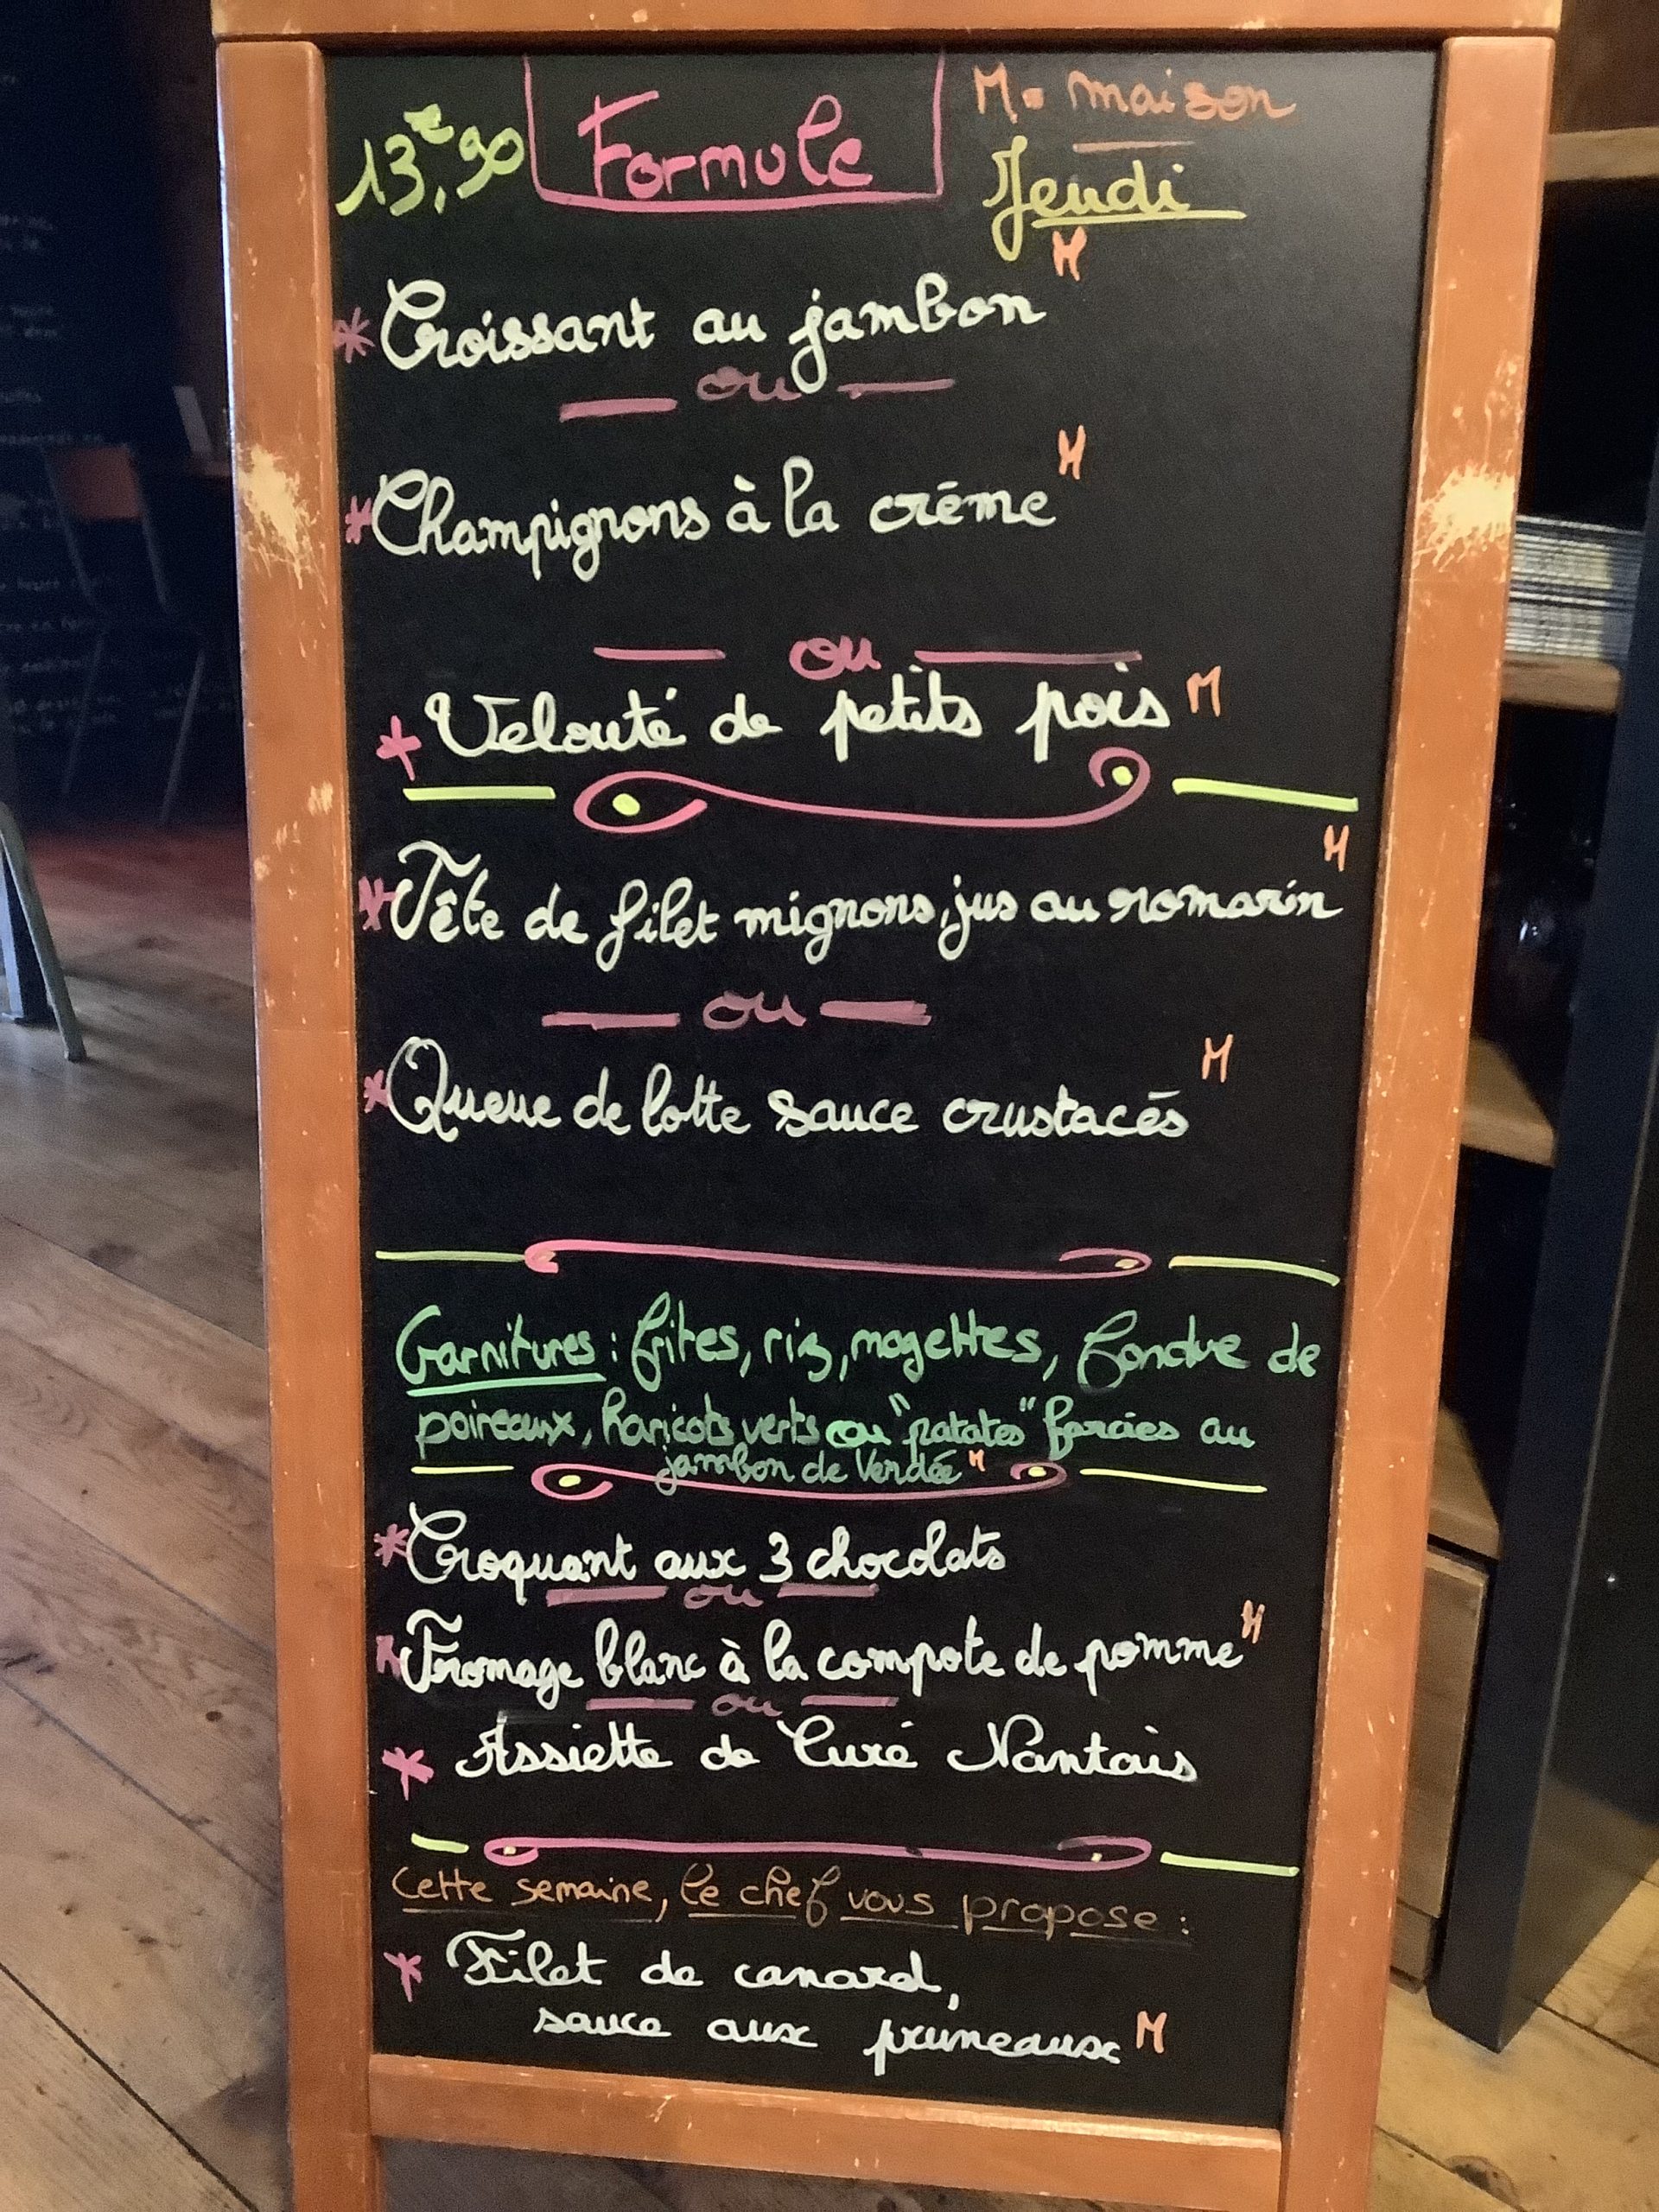 13€,90 Formule M = maison
Jeudi
* Croissant au jambon M
ou
* Champignons à la crème M
ou
* Velouté de petits pois M
* Tête de filet mignons, jus au romarin M
ou
* Queue de lotte sauce crustacés M
Garnitures : frites, riz, mogettes, fondue de
poireaux, haricots verts ou "patates" farcies au
jambon de Vendée M
* Croquant aux 3 chocolats
ou
* Fromage blanc à la compote de pomme M
ou
* Assiette de Curé Nantais
Cette semaine, le chef vous propose :
* Filet de canard,
sauce aux pruneaux M